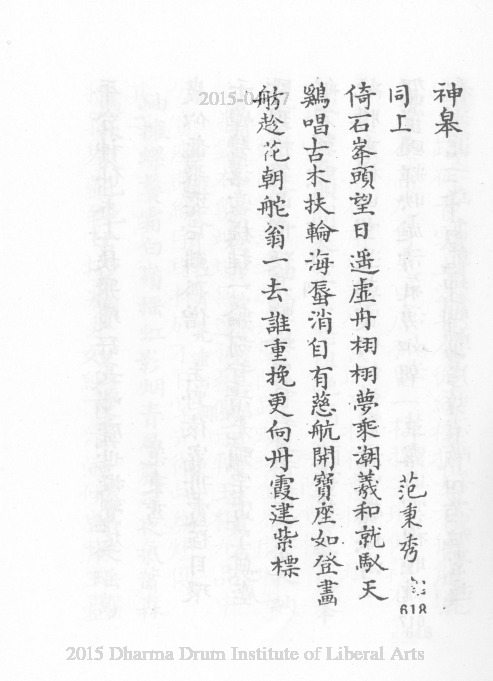 神皋
同上
范秉秀
倚石峯頭望日遥虚舟栩栩夢乘潮羲和就馭天
鷄唱古木扶輪海蜃消自有慈航開寶座如登畫
舫趁花朝舵翁一去誰重挽更向丹霞建紫標
618
2015 Dharma Drum Institute of Liberal Arts